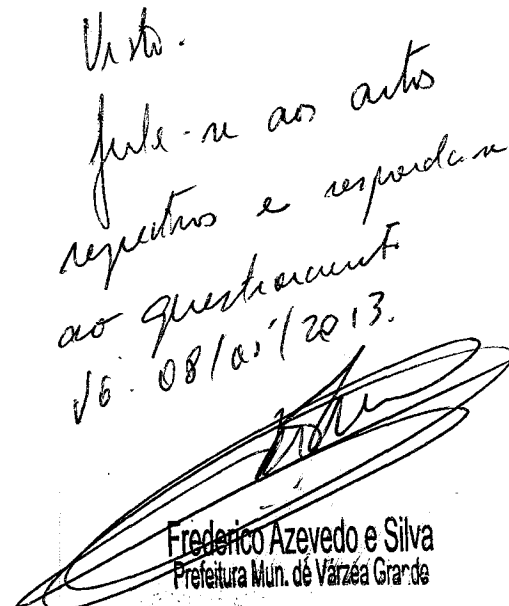 Visto.
Junte-se aos autos
respectivos e responda-se
ao questionamento
VG. 08/05/2013.
Frederico Azevedo e Silva
Prefeitura Mun. de Várzea Grande